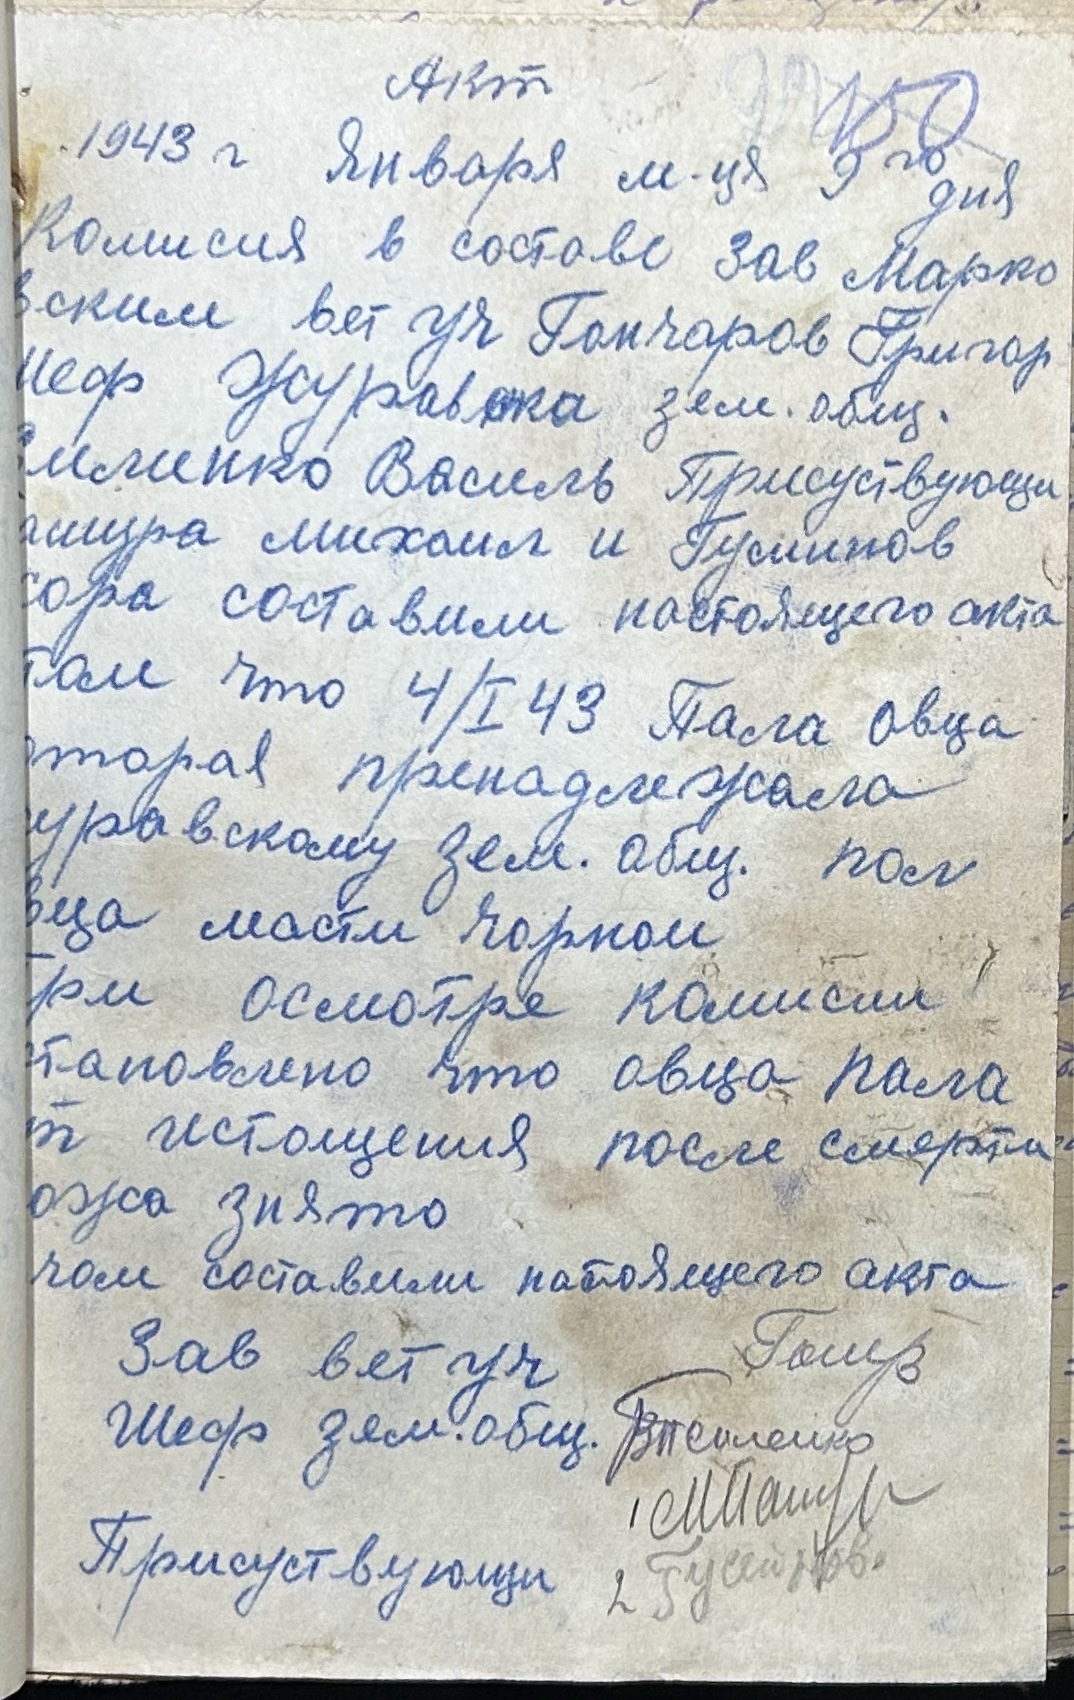 150
Акт
1943 г Января м-ця 9го дня
Комисия в составе Зав Марко
вским вет уч Гончаров Григор
Шеф Журавка зем. общ.
Василь Присуствующи
михаил и
сора составили настоящего акта
том что 4/I 43 Пала овца
оторая пренадлежала
уравскому зем. общ. пол
вца масти чорной
при осмотре комисии
становлено что овца пала
т истощения после смерти
ожа знято
чом составили настоящего акта
Зав вет уч
Шеф зем. общ.
1
Присуствующи
2